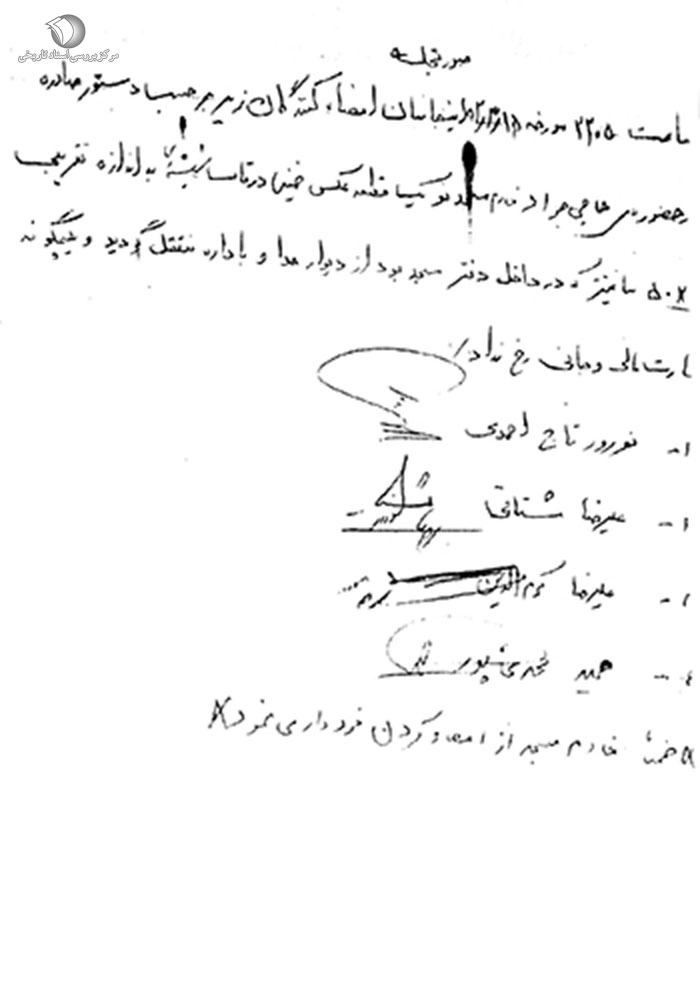 مرکز بررسی اسناد تاریخی
صورتجلسه
ساعت ۲۲۰۵ مورخه اینجانبان امضاء کنندگان زیر بر حسب دستور صادره
و حضور حاجی مراد خادم مسجد یک قطعه عکس خمینی در قاب شیشه‌ای به اندازه تقریب
۵۰× سانتیمتر که در داخل دفتر مسجد بود از دیوار جدا و باداره منتقل گردید و هیچگونه
خسارت مالی و جانی رخ نداد
۱- نوروز تاج احمدی
علیرضا شستانی
علیرضا
۴- حمید
ضمناً خادم مسجد از امضاء کردن خودداری نمود